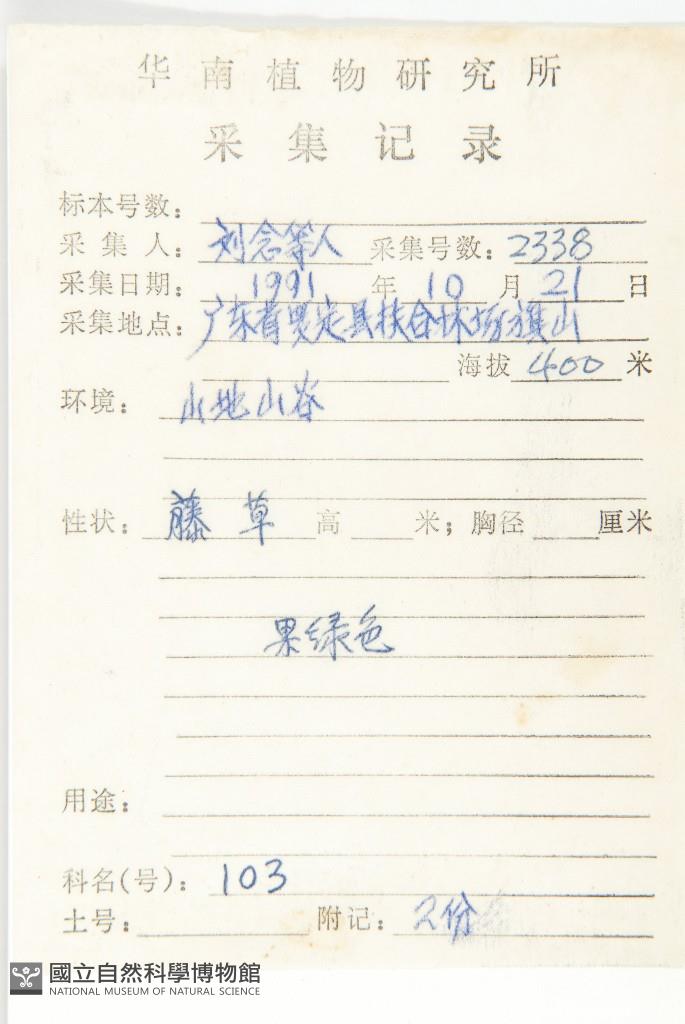 华南植物研究所
采集记录
标本号数:
采集人: 刘念等人 采集号数: 2338
采集日期: 1991 年 10 月 21 日
采集地点: 广东省罗定县扶合林场旗山
海拔 400 米
环境: 山地山谷
性状: 藤草 高 米; 胸径 厘米
果绿色
用途:
科名(号): 103
土号: 附记: 2份
國立自然科學博物館
NATIONAL MUSEUM OF NATURAL SCIENCE